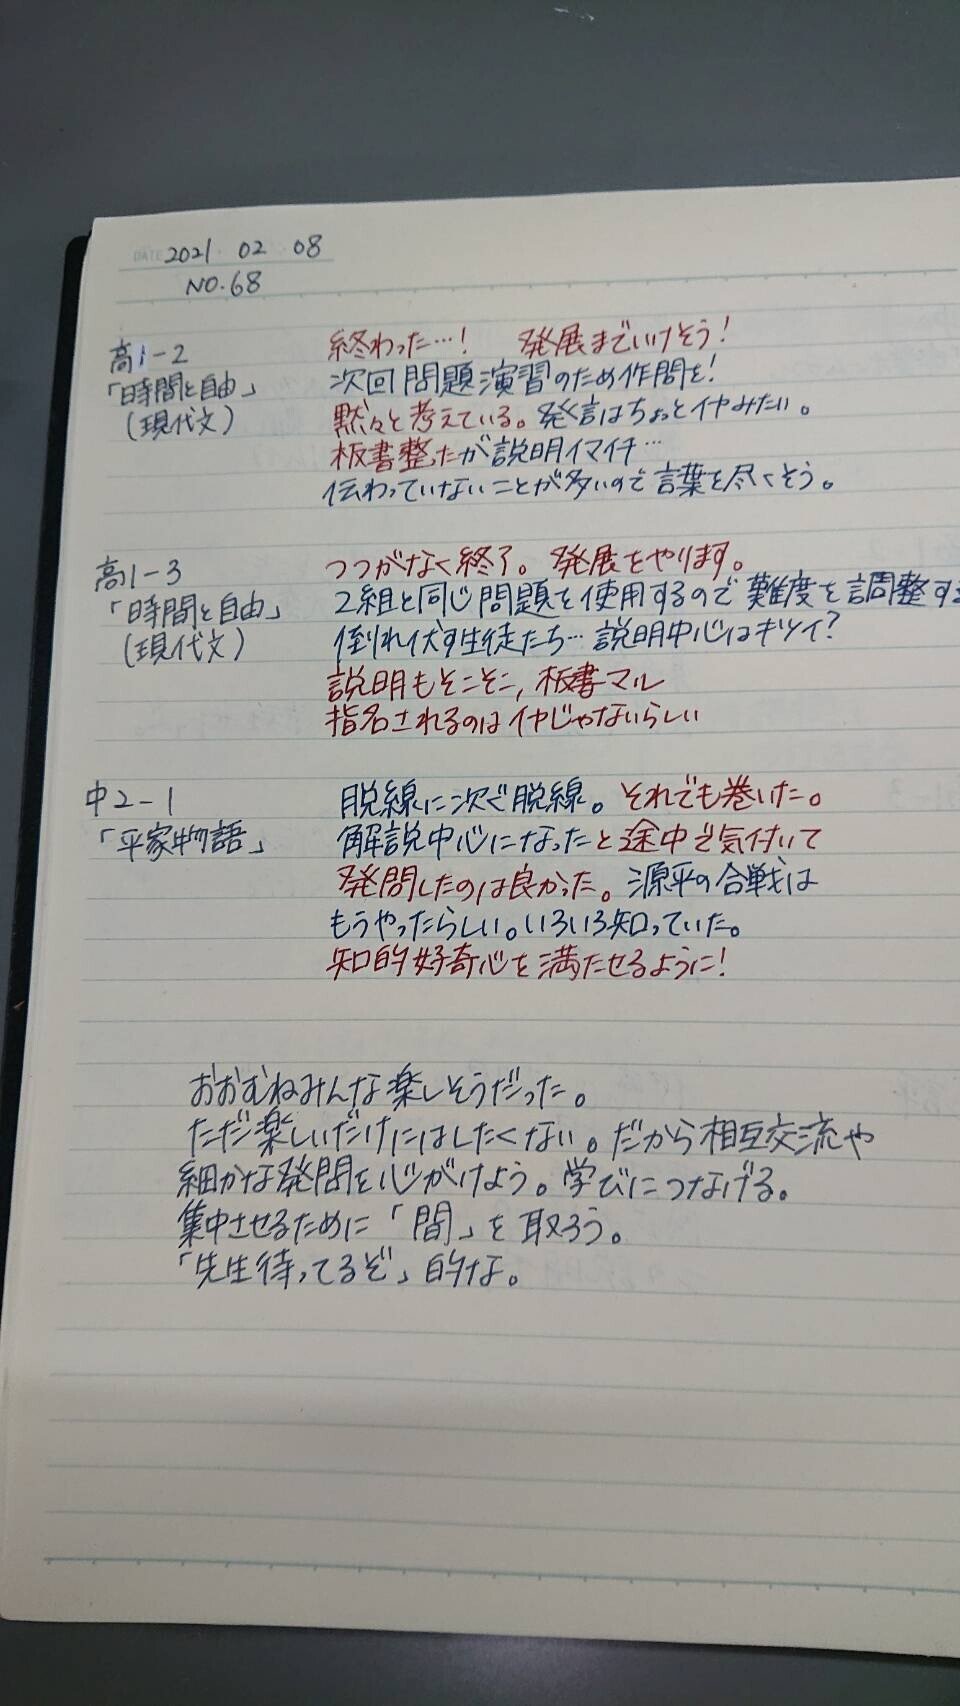 DATE 2021 02 08
NO.68
高1-2
「時間と自由」
(現代文)
終わった…! 発展までいけそう!
次回問題演習のため作問を!
黙々と考えている。発言はちょっとイヤみたい。
板書整ったが説明イマイチ…
伝わっていないことが多いので言葉を尽くそう。
高1-3
「時間と自由」
(現代文)
つつがなく終了。発展をやります。
2組と同じ問題を使用するので難度を調整する
倒れ伏す生徒たち…説明中心はキツイ?
説明もそこそこ、板書マル
指名されるのはイヤじゃないらしい
中2-1
「平家物語」
脱線に次ぐ脱線。それでも巻いた。
解説中心になったと途中で気付いて
発問したのは良かった。源平の合戦は
もうやったらしい。いろいろ知っていた。
知的好奇心を満たせるように!
おおむねみんな楽しそうだった。
ただ楽しいだけにはしたくない。だから相互交流や
細かな発問を心がけよう。学びにつなげる。
集中させるために「間」を取ろう。
「先生待ってるぞ」的な。